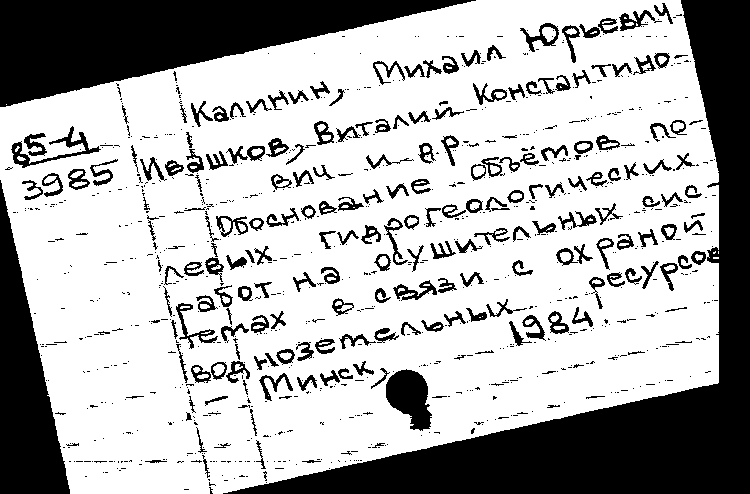 85-4
3985
Калинин, Михаил Юрьевич
Ивашков, Виталий Константино-
вич и др.
Обоснование объёмов по-
левых гидрогеологических
работ на осушительных сис-
темах в связи с охраной
водноземельных ресурсов
- Минск, 1984.